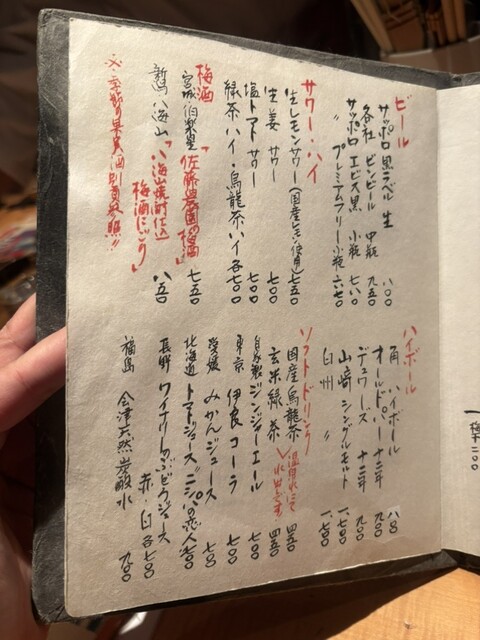 ビール
サッポロ 黒ラベル 生 八〇〇
各社 ビンビール 中瓶 九五〇
サッポロ エビス黒 小瓶 七八〇
〃 プレミアムフリー 小瓶 六七〇
サワー・ハイ
生レモンサワー(国産レモン使用) 七五〇
生姜 サワー 七〇〇
塩トマト サワー 七〇〇
緑茶ハイ・烏龍茶ハイ 各七〇〇
梅酒
宮城 伯楽星「佐藤農園の梅酒」 七五〇
新潟 八海山「八海山焼酎仕込
梅酒にごり」 八五〇
※季節の果実酒別頁参照!!
ハイボール
角 ハイボール 八〇〇
オールドパー 十二年 九〇〇
デュワーズ 十二年 九〇〇
山崎 シングルモルト 一、七〇〇
白州 〃 一、七〇〇
ソフトドリンク
国産烏龍茶
玄米緑茶
自家製ジンジャーエール 七〇〇
東京 伊良コーラ 七〇〇
愛媛 みかんジュース
北海道 トマトジュース"ニシパの恋人"
長野 ワイナリーのぶどうジュース
赤・白 各七〇〇
福島 会津天然炭酸水